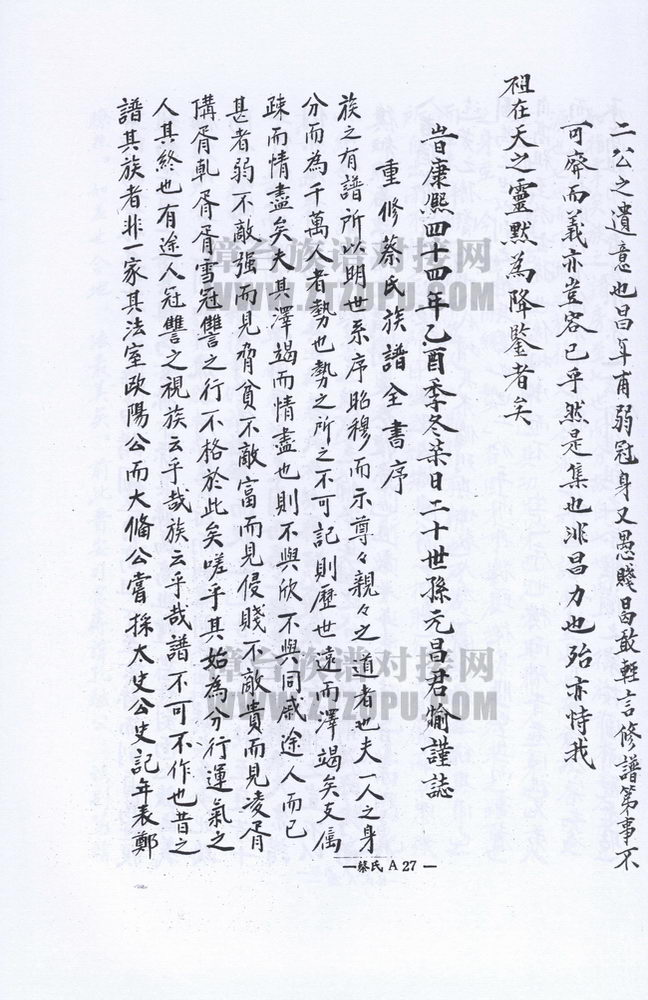 二公之遺意也昌年甫弱冠身又愚賤曷敢輕言修譜第事不
可廢而義亦豈容已乎然是集也非昌力也殆亦恃我
祖在天之靈默為降鑒者矣
旹康熙四十四年乙酉季冬菜日二十世孫元昌君愉謹誌
重修蔡氏族譜全書序
族之有譜所以明世系序昭穆而示尊々親々之道者也夫一人之身
分而為千萬人者勢也勢之所之不可記則歷世遠而澤竭矣支属
疎而情盡矣夫其澤竭而情盡也則不與欣不與同戚途人而已
甚者弱不敵强而見脅貧不敵富而見侵賤不敵貴而見凌胥
傋胥軋胥胥雪冠讐之行不格於此矣嗟乎其始為分行運氣之
人其終也有途人冠讐之視族云乎哉族云乎哉譜不可不作也昔之
譜其族者非一家其法室歐陽公而大備公嘗採太史公史記年表鄭
—蔡氏 A 27 —
漳台族谱对接网
WWW.ZTZUPU.COM
漳台族谱对接网
WWW.ZTZUPU.COM